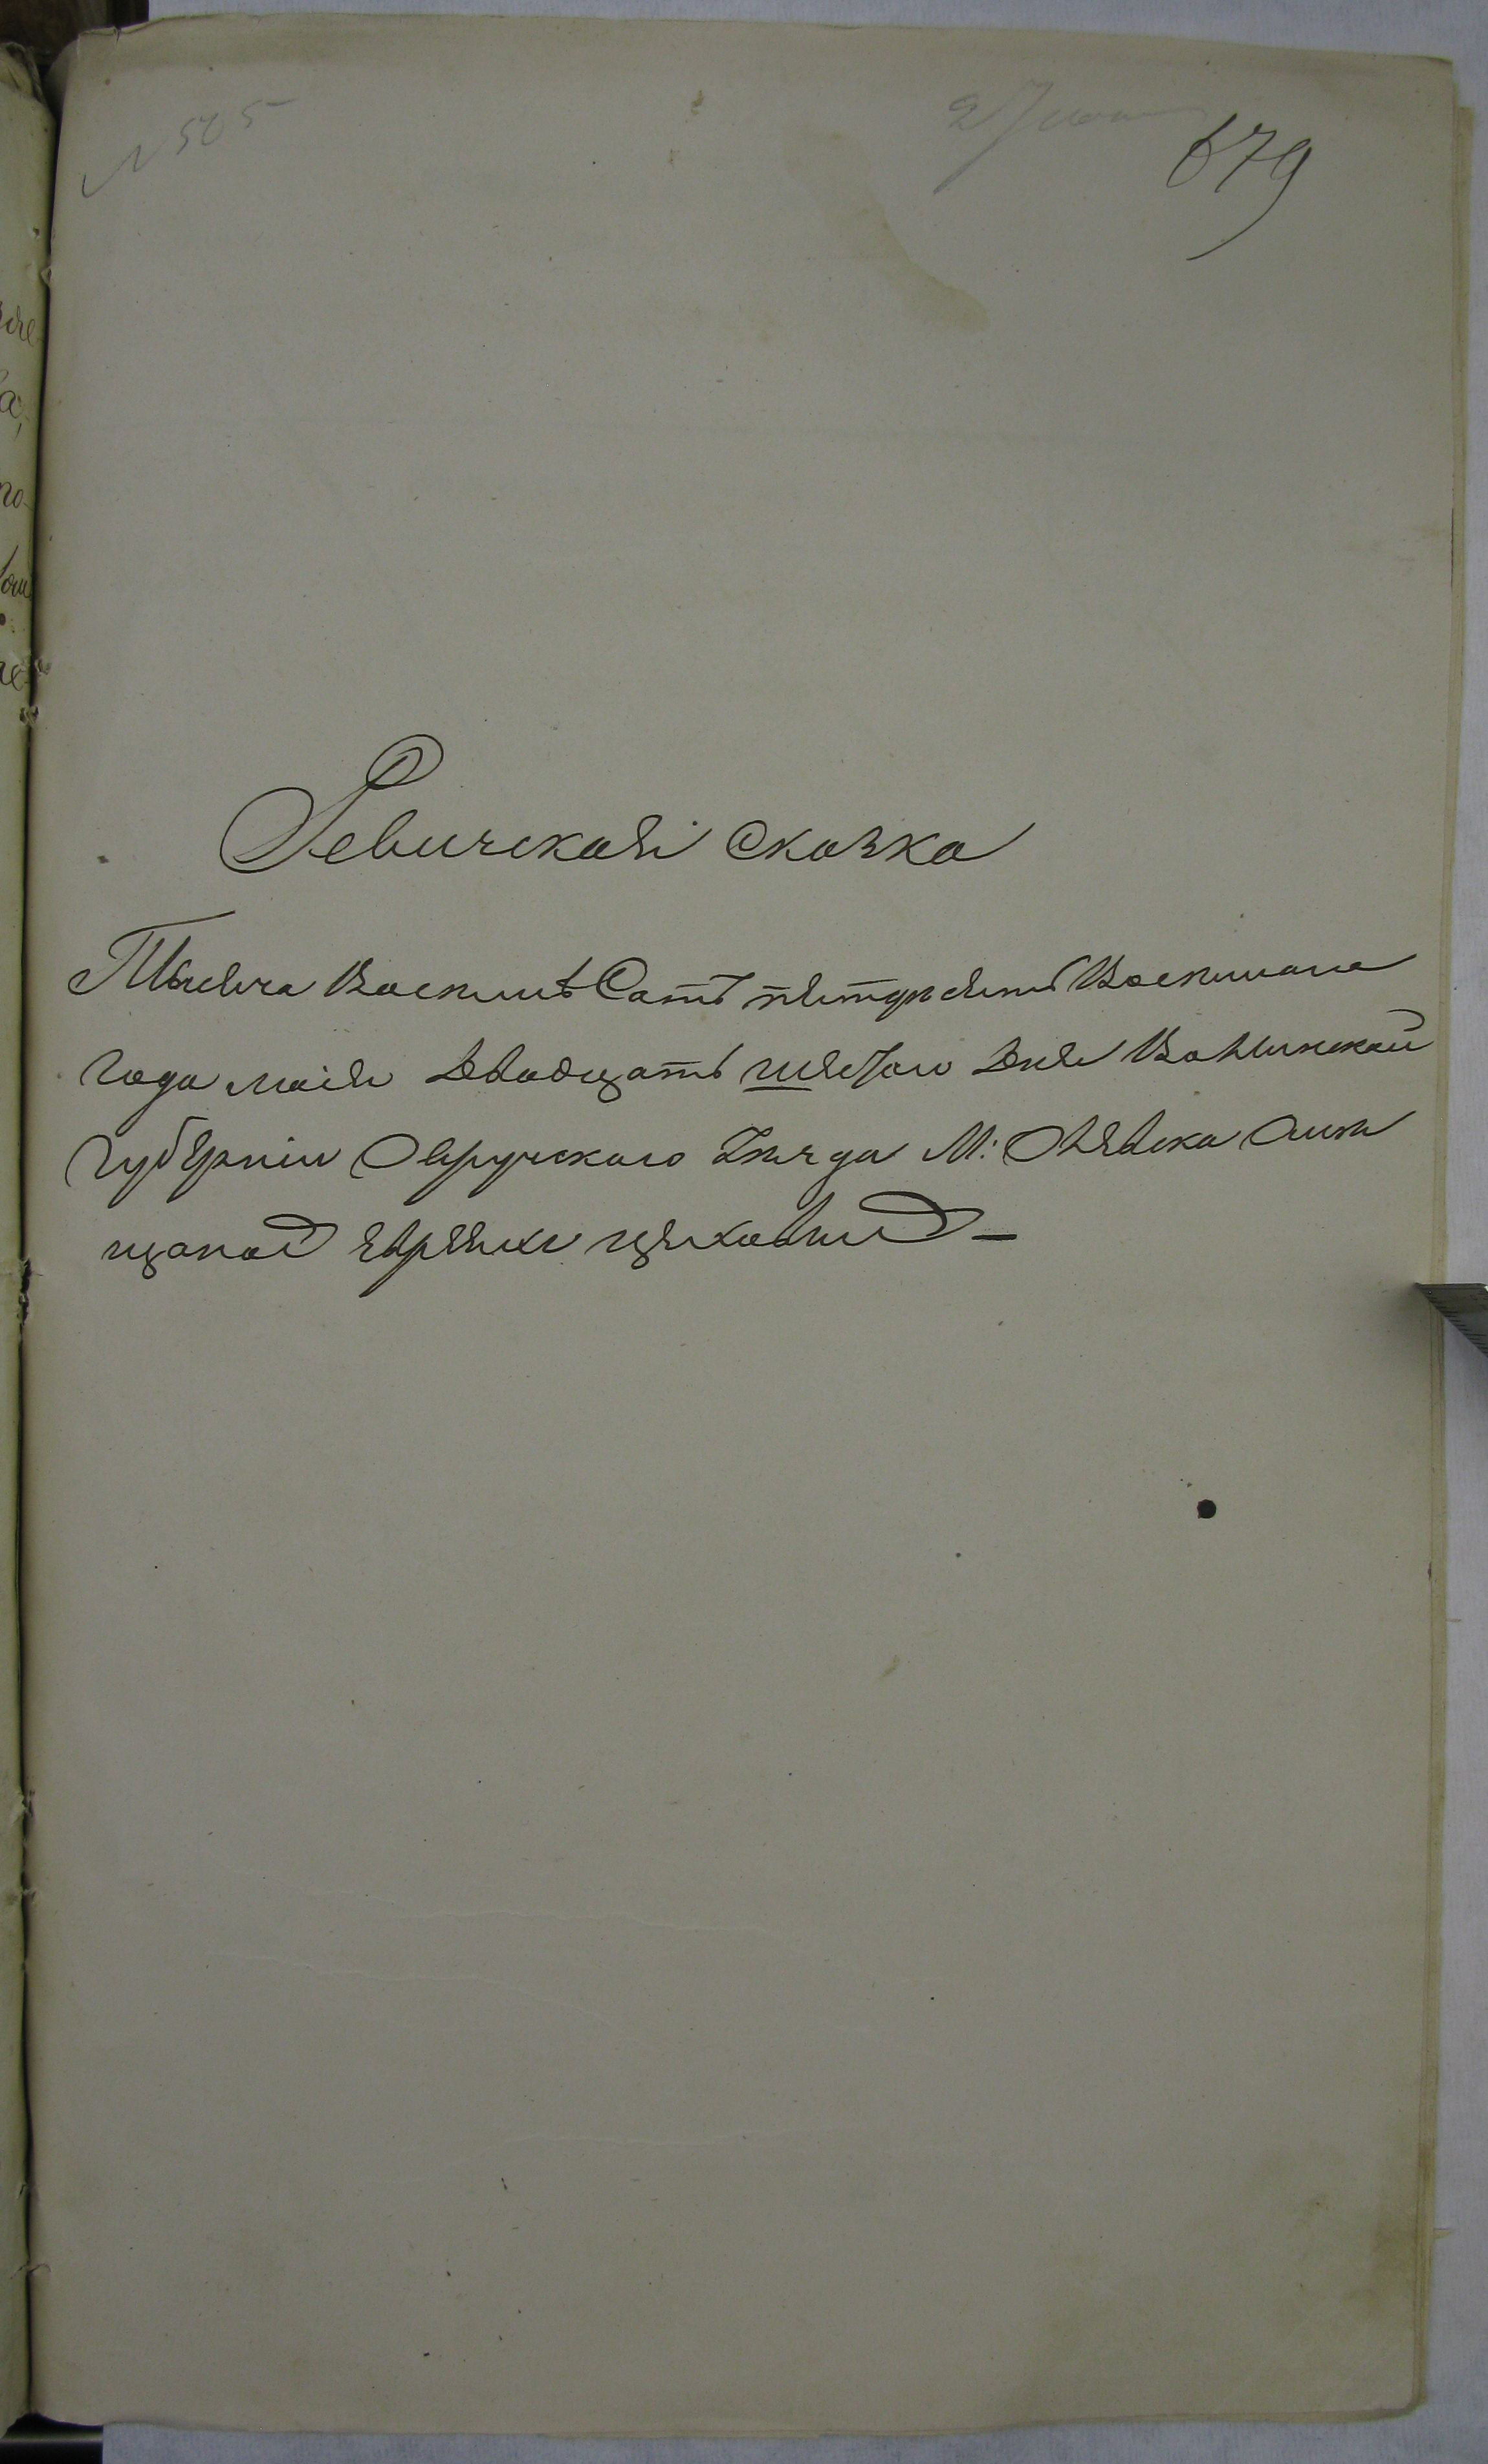 N 525
679
Ревизская сказка
Тысяча Восемь Сотъ пятдесятъ Восмого
года маія двадцать шестого дня Волынской
губерніи Овручского уезда М: Олевска
евреяхъ цеховыхъ